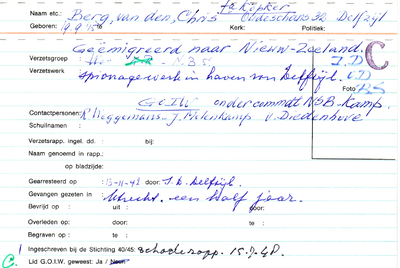 fa Köpker
Naam etc.: Berg, van den, Chris Oudeschans 32 Delfzijl
Geboren: 19.9.15 Kerk: Politiek:
Geëmigreerd naar Nieuw-Zeeland. C
Verzetsgroep : N.B.S. I.D
Verzetswerk spionagewerk in haven van Delfzijl. I.D
Foto BS
G.O.I.W. ondercommdt NSB-Kamp.
Contactpersonen: R. Weggemans - J. Molenkamp v. Diedenhove
Schuilnaam :
Verzetsrapp. ingel. dd. : bij:
Naam genoemd in rapp.:
op bladzijde:
Gearresteerd op : 13-11-42 door: S.D. Delfzijl.
Gevangen gezeten in : Utrecht. een half jaar.
Bevrijd op : uit : door:
Overleden op : door: te :
Begraven op : te :
Ingeschreven bij de Stichting 40/45: schaderapp. 15.9.48.
C. Lid G.O.I.W. geweest: Ja / Neen